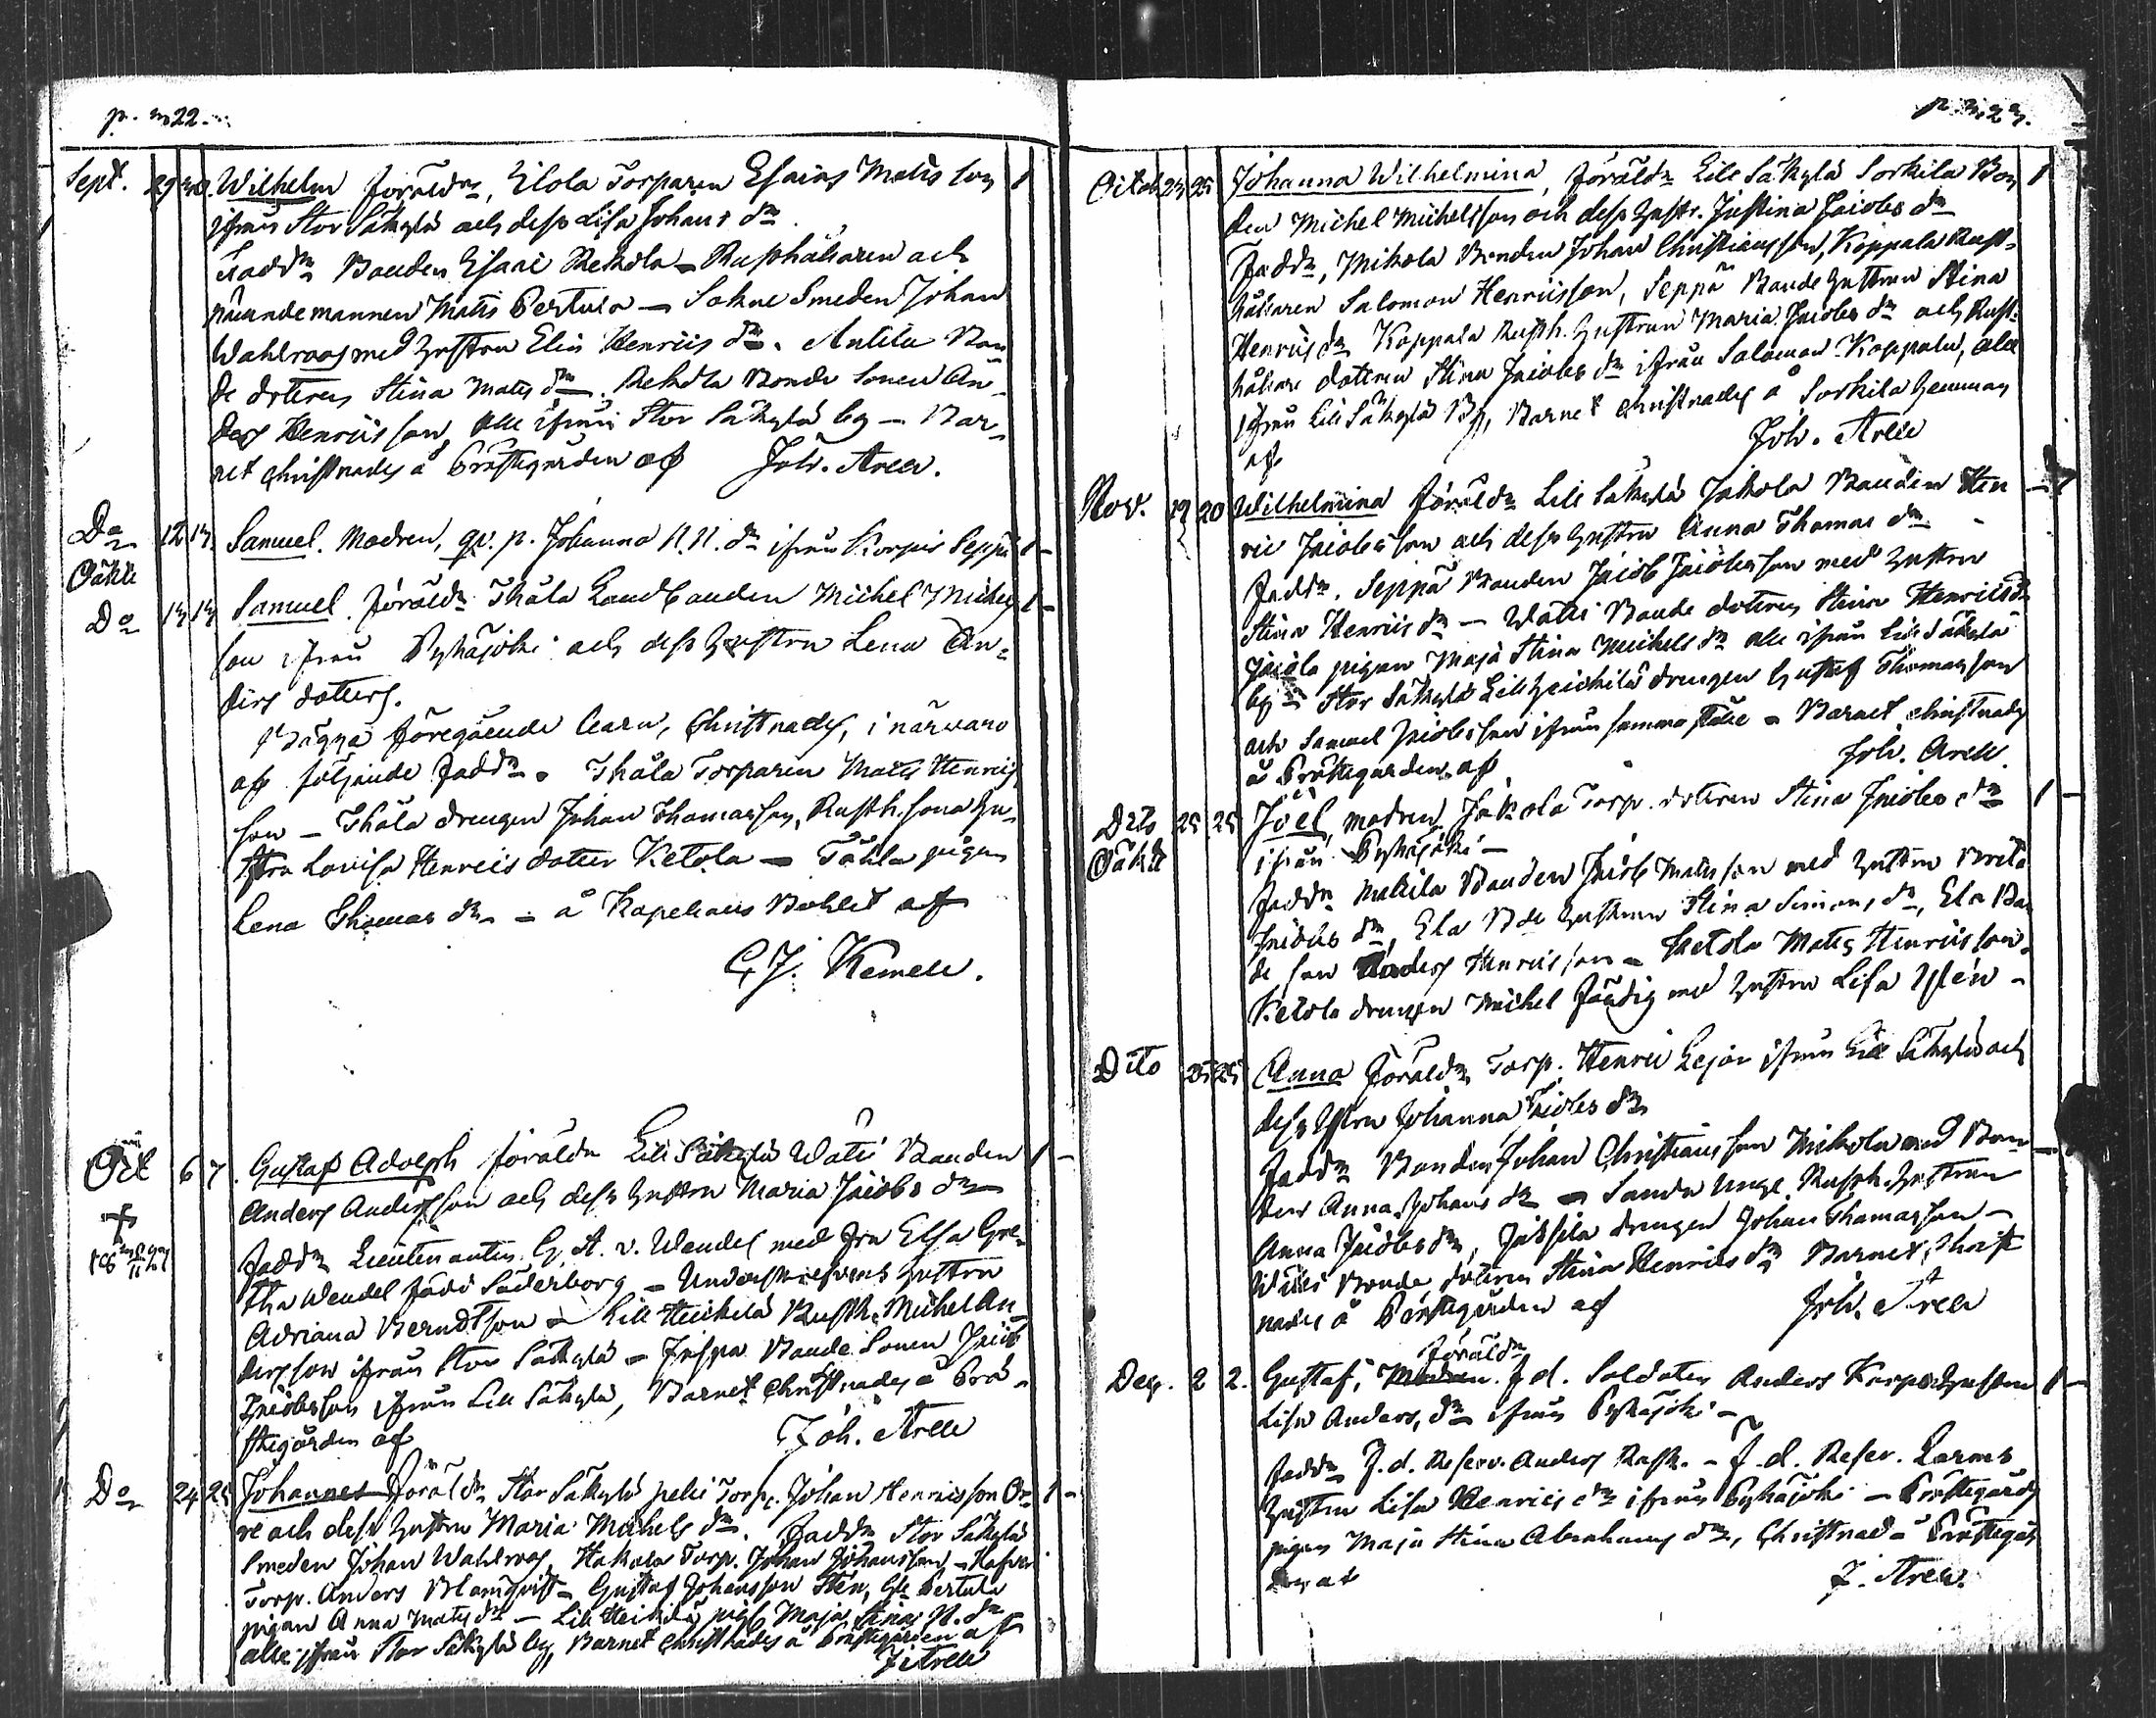 p. m 22.
Sept. 29 30. Wilhelm föräldrar, Elola Torparen Esaias Matsson 1
ifrån Stor Säkylä och dess Lisa Johans dr
Faddr Bonden Esaai Rekola - Rusthållaren och
nämndemannen Matts Pertula - Sokne Smeden Johan
Wahlroos med hustru Elin Henrics dr. Anttila Bon
de dotren Stina Matts dr Rekola Bonde Sonen An
ders Henricsson, alle ifrån Stor Säkylä by - Bar
net christnades å Prästegården af Joh. Arell.
Do 12 13. Samuel. Modren, qv. p. Johanna N.N. dr ifrån Korpis Seppä 1 -
Oäkta
Do 13 13 Samuel. föräldr Thåla Landbonden Michel Michels 1 -
son ifrån Pyhäjoki och dess hustru Lena An-
ders dotter.
Bägge föregående barn, Christnades, i närvaro
af följande faddr. Thåla Torparen Matts Henrics
son - Thåla drengen Johan Thomasson, Rusth. sona hu
stru Lovisa Henrics dotter Ketola - Tåhla pigan
Lena Thomas dr - å Kapellans Bohlet af
G J. Kemell.
Oct 6 7. Gustaf Adolph föräldr Lill Säkylä Wäti Bonden 1 -
Anders Andersson och dess hustru Maria Jacobs dr
Faddr Lieutenanten G. A. v. Wendel med fru Elsa Gre-
tha Wendel född Söderborg - hustru
Adriana Berndtson - Lill Heickilä Rusth. Michel An
dersson ifrån Stor Säkylä - Juspa Bonde Sonen Jacob
Jacobsson ifrån Lill Säkylä, Barnet christnades å Prä-
stegården af Joh. Arell
Do 24 25 Johannes föräldr Stor Säkylä Torp. Johan Henricsson 1 -
och dess hustru Maria Michels dr. Faddr Stor Säkylä
Smeden Johan Wahlroos, Hakala Torp. Johan Johansson -
Torp. Anders Blomqvist - Gustaf Johansson Sten, Pertula
pigan Anna Matts dr - Lill Heickilä pig. Maja Stina N. dr
alle ifrån Stor Säkylä by, Barnet christnades å Prästegården af
J Arell
p. m. 23.
Octob 23 25 Johanna Wilhelmina, föräldr Lill Säkylä Sorkila Bon 1
den Michel Michelsson och dess hustr. Justina Jacobs dr
Faddr, Mikola Bonden Johan Christiansson, Koppala Rust-
hållaren Salomon Henricsson, Seppä Bonde hustrun Stina
Henrics dr Koppala Rusth. hustrun Maria Jacobs dr och Rust-
hållare dotren Stina Jacobs dr ifrån Salomon Koppala, alla
ifrån Lill Säkylä By, Barnet christnades å Sorkila hemman
af Joh. Arell
Nov. 19 20 Wilhelmina föräldr Lill Säkylä Jakola Bonden Hen
ric Jacobsson och dess hustru Anna Thomas dr
Faddr. Seppä Bonden Jacob Jacobsson med hustru
Stina Henrics dr - Wäti Bonde dotren Stina Henrics dr
pigan Maja Stina Michels dr alle ifrån Lill Säkylä
by - Stor Säkylä Lill heickilä drengen Gustaf Thomasson
och Samuel Jacobsson ifrån samma ställe - Barnet christnades
å Prästegården af Joh. Arell.
Dito 25 25 Joel, modren Jakola Torp. dotren Stina Jacobs dr 1 -
Oäkta ifrån Pyhäjoki -
Faddr Mattila Bonden Jacob Mattsson med hustru Brita
Jacobs dr, Ela Bde hustrun Stina Simons, dr, Ela Bon
de son Anders Henricsson - Ketola Matts Henricsson
Ketola drengen Michel med hustru Lisa
Dito 25 25 Anna föräldr Torp. Henric Lejon ifrån Lill Säkylä och
dess hstru Johanna Jacobs dr
Faddr Bonden Johan Christiansson Mikola med Bon-
den Anna Johans dr - Rusth. hustrun
Anna Jacobs dr, Jussila drengen Johan Thomasson -
Wäti Bonde dotren Stina Henrics dr Barnet Christ
nades å Prästegården af Joh. Arell
Dec. 2 2. Gustaf, föräldr f d. Soldaten Anders Korpi hustrun 1 -
Lisa Anders, dr ifrån Pyhäjoki -
Faddr f. d. Reserv. Anders Rask. - f. d. Reser. Larms
hustru Lisa Henrics dr ifrån Pyhäjoki - Prästegårds
pigan Maja Stina Abrahams dr, Christnad å Prästegår
den af J. Arell.